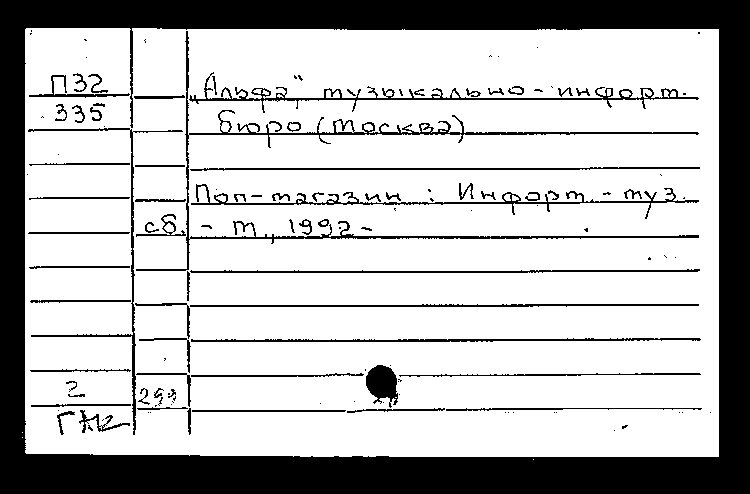 П32
335
„Альфа“, музыкально-информ.
бюро (Москва)
Поп-магазин : Информ. - муз.
сб. - М., 1992 -
2
299
ГАК